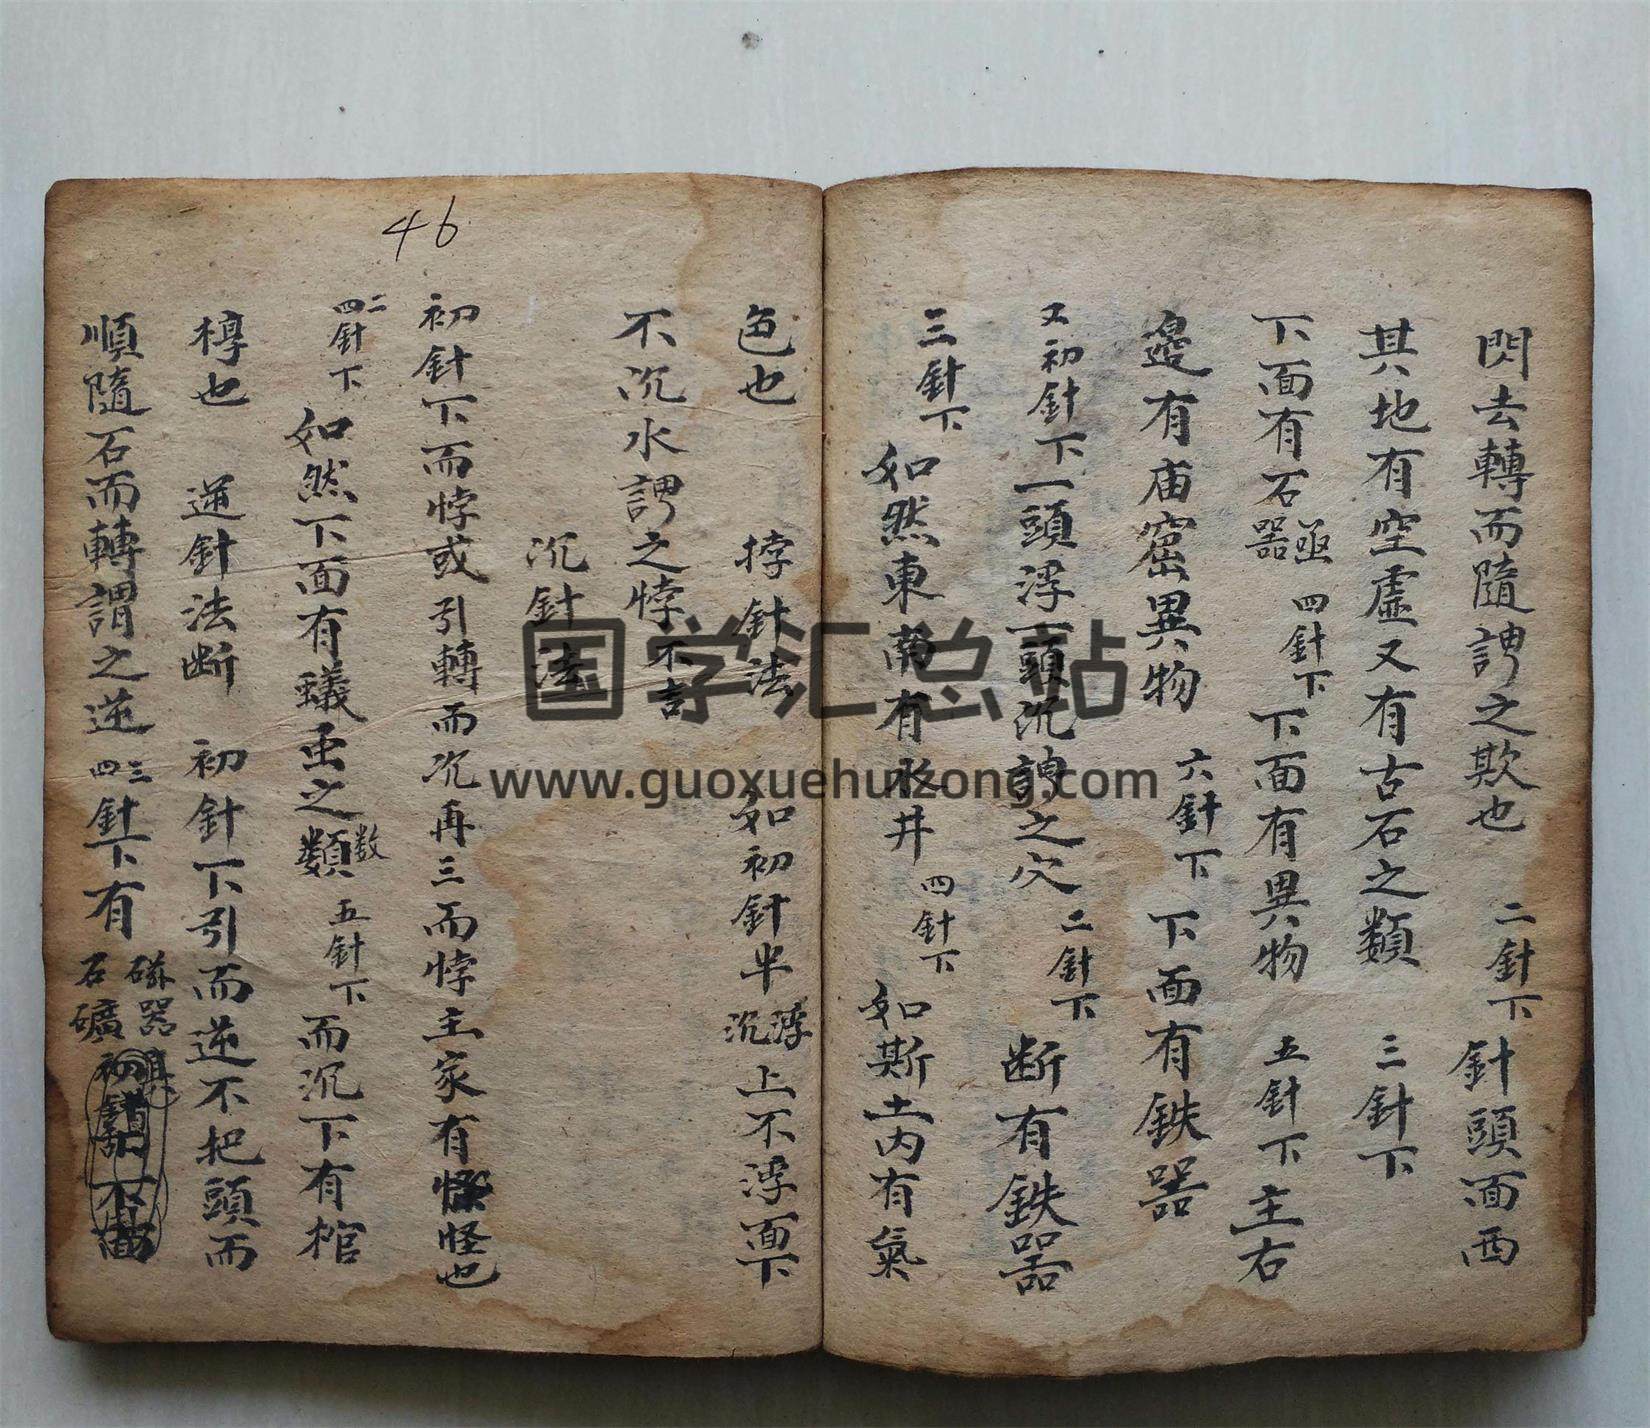 閃去轉而隨謂之欺也 二針下 針頭面西
其地有空虛又有古石之類 三針下
下面有石器 四針下 下面有異物 五針下 主右
邊有庙窟異物 六針下 下面有鉄器
又初針下一頭浮一頭沉謂之穴 二針下 断有鉄器
三針下 如然東南有水井 四針下 如斯土内有氣
46
色也 㧞針法 如初針半沉浮上不浮面下
不沉水謂之悖不吉
沉針法
初針下而悖或引轉而沉再三而悖主家有怪也
二四針下 如然下面有蟻虫之類数 五針下 而沉下有棺
椁也 逆針法断 初針下引而逆不把頭而
順隨石而轉謂之逆 三四針下有磁器石礦
国学汇总站
www.guoxuehuizong.com